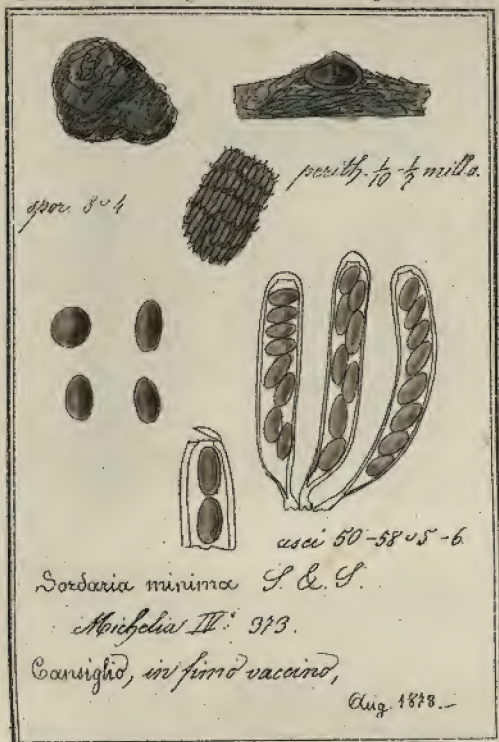 perith. 1/10 - 1/2 mill.
spor. 8 ∪ 4
asci 50-58 ∪ 5-6.
Sordaria minima S. & S.
Michelia IV: 373.
Cansiglio, in fimo vaccino,
Aug. 1878.-